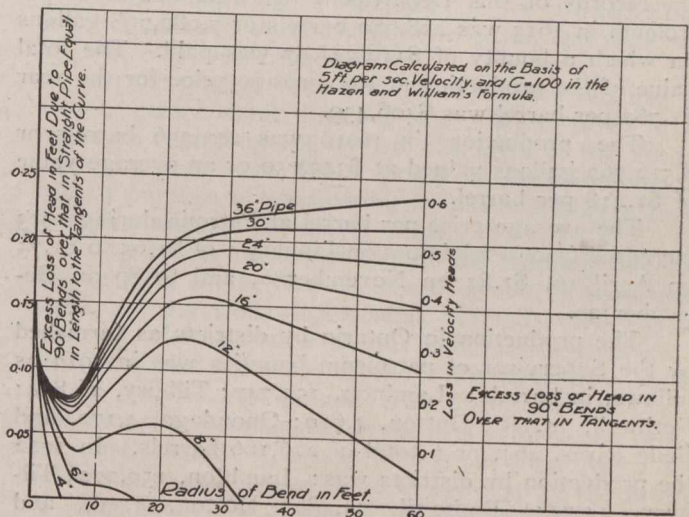 Diagram Calculated on the Basis of
5 ft. per sec. Velocity, and C=100 in the
Hazen and William's Formula.
Excess Loss of Head in Feet Due to
90° Bends over that in Straight Pipe Equal
in Length to the Tangents of the Curve.
0.25
0.20
0.15
0.10
0.05
0
36" Pipe
30"
24"
20"
16"
12"
8"
6"
4"
0.6
0.5
0.4
0.3
0.2
0.1
Loss in Velocity Heads
EXCESS LOSS OF HEAD IN
90° BENDS
OVER THAT IN TANGENTS.
Radius of Bend in Feet.
0
10
20
30
40
50
60